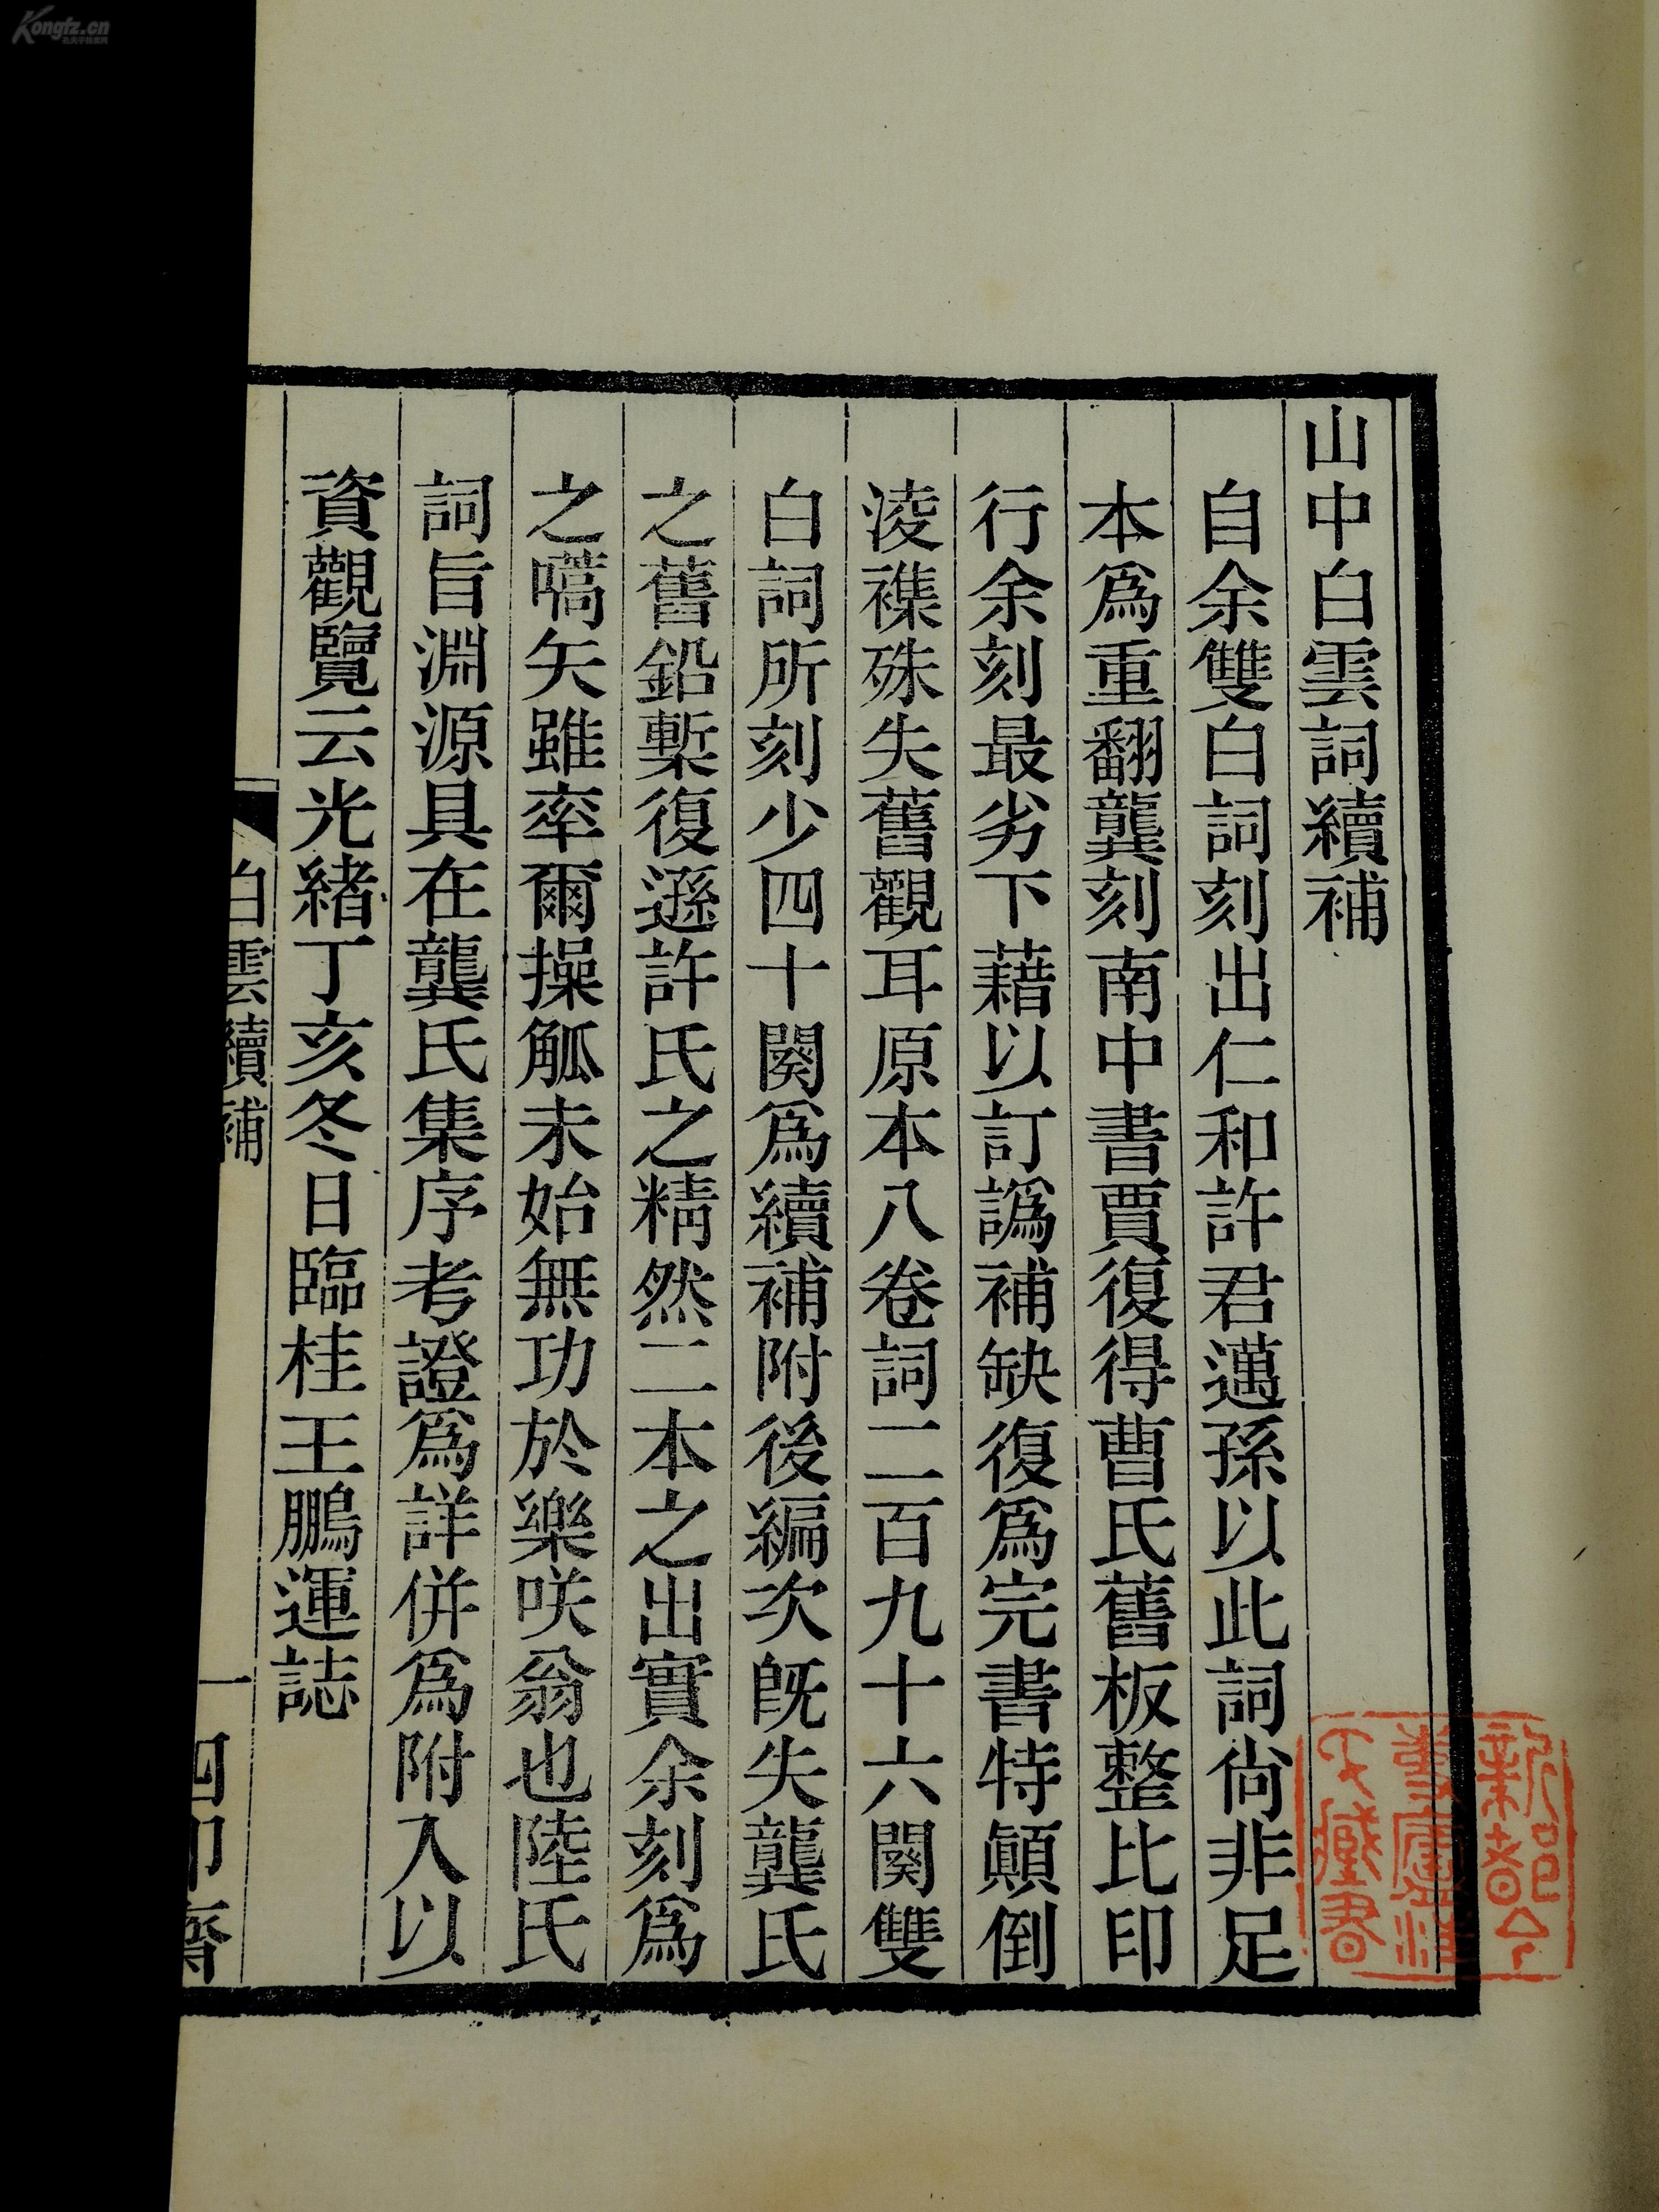 山中白雲詞續補
自余雙白詞刻出仁和許君邁孫以此詞尙非足
本爲重翻龔刻南中書賈復得曹氏舊板整比印
行余刻最劣下藉以訂譌補缺復爲完書特顚倒
淩襍殊失舊觀耳原本八卷詞二百九十六闋雙
白詞所刻少四十闋爲續補附後編次旣失龔氏
之舊鉛槧復遜許氏之精然二本之出實余刻爲
之嚆矢雖率爾操觚未始無功於樂咲翁也陸氏
詞旨淵源具在龔氏集序考證爲詳併爲附入以
資觀覽云光緒丁亥冬日臨桂王鵬運誌
白雲續補
一
四印齋
Kongfz.cn